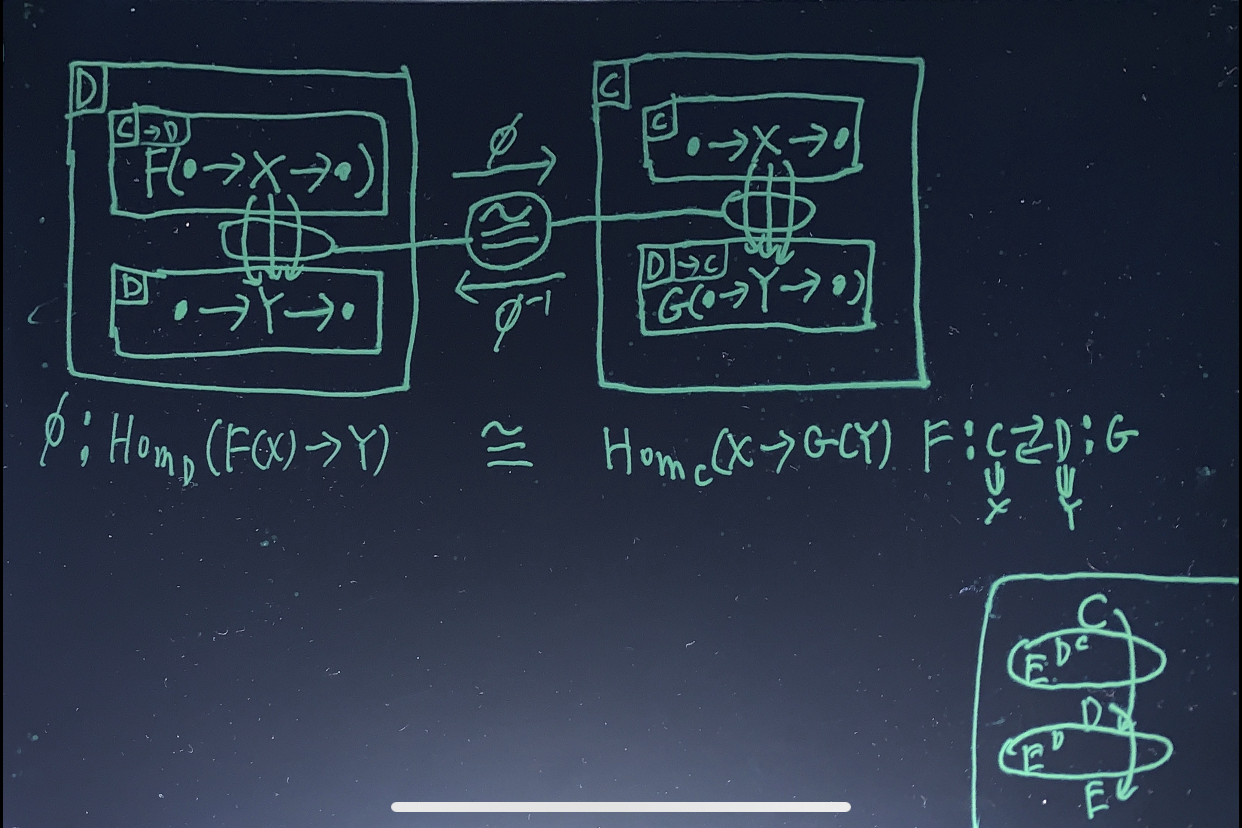 D
C → D
F(• → X → •)
D
• → Y → •
φ
≅
φ⁻¹
C
C
• → X → •
D → C
G(• → Y → •)
φ : Hom_D (F(X) → Y) ≅ Hom_C (X → G(Y)) F : C ⇄ D : G
X Y
C
E^{D^C}
D
E^D
E